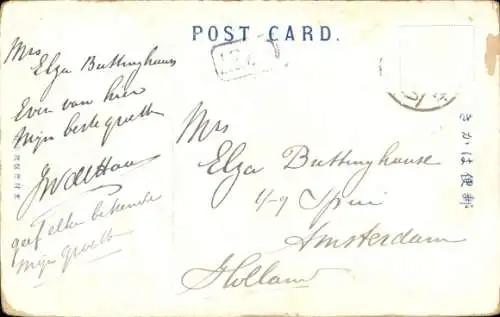 POST CARD.
Mrs
Elza Buttinghause
Even van hier
Mijn beste groeten
geef elke bekende
mijn groeten
Mrs
Elza Buttinghause
Amsterdam
Holland
きかは便郵